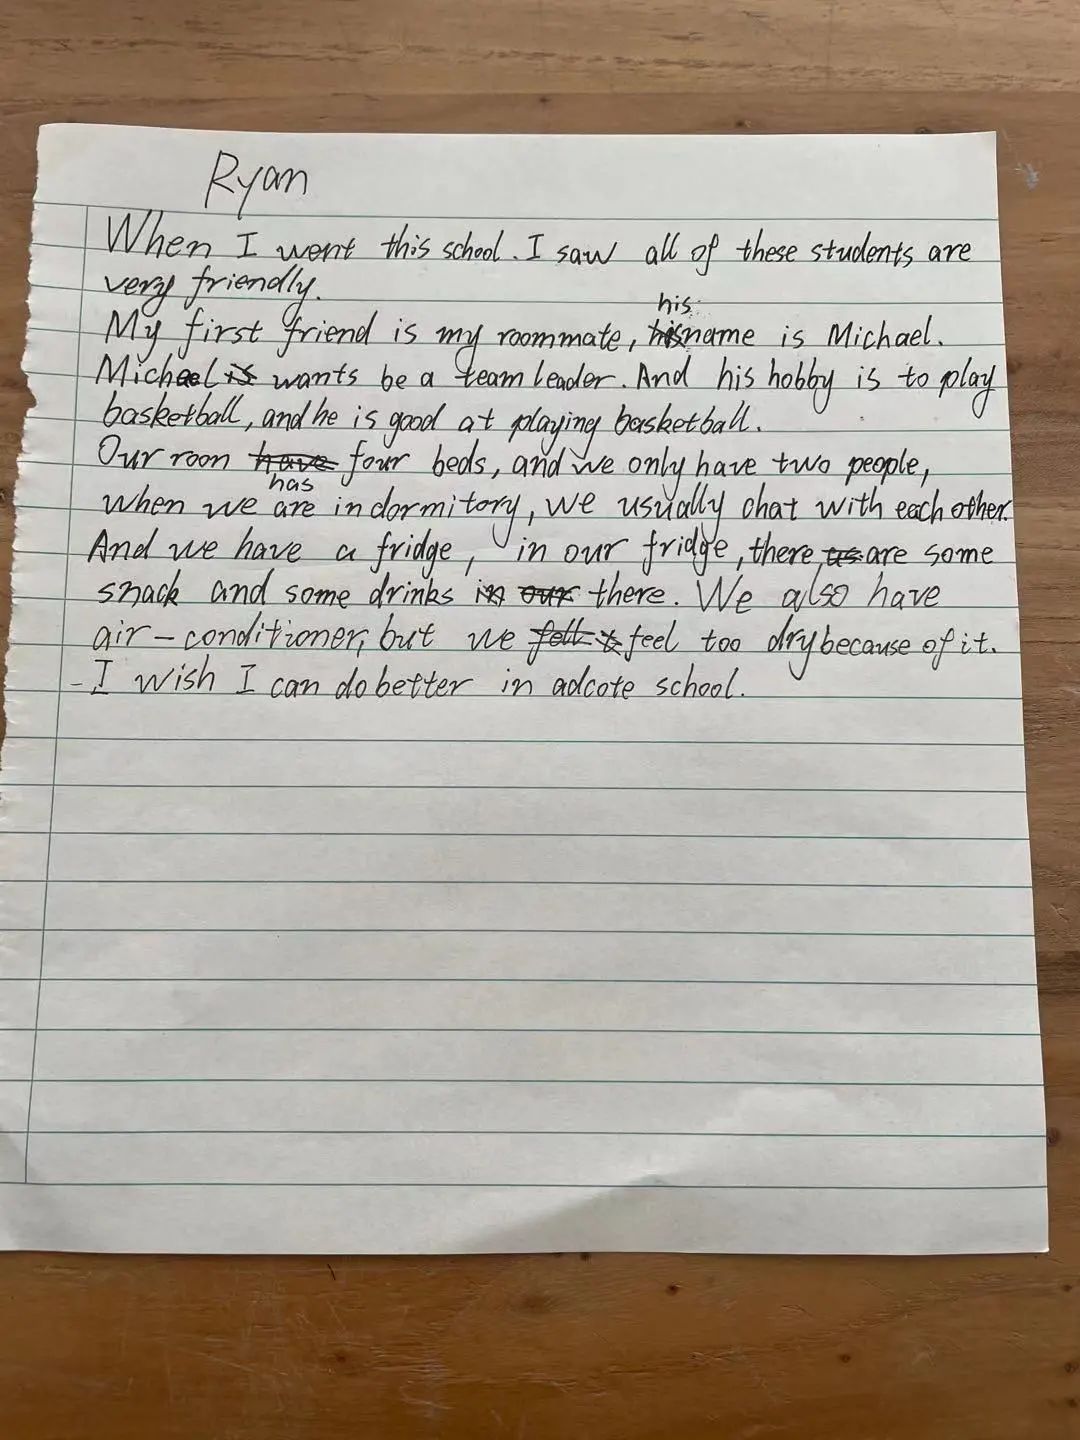 Ryan
When I went this school. I saw all of these students are
very friendly.
his
My first friend is my roommate, name is Michael.
Michael is wants be a team leader. And his hobby is to play
basketball, and he is good at playing basketball.
Our roon have four beds, and we only have two people,
has
when we are in dormitory, we usually chat with each other.
And we have a fridge, in our fridge, there as are some
snack and some drinks in our there. We also have
air-conditioner, but we felt feel too dry because of it.
- I wish I can do better in adcote school.